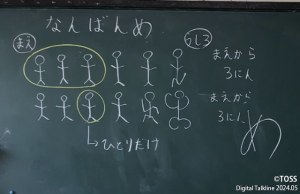 なんばんめ
まえ
うしろ
まえから
3にん
まえから
3に
ひとりだけ
め
©TOSS
Digital Talkline 2024.05